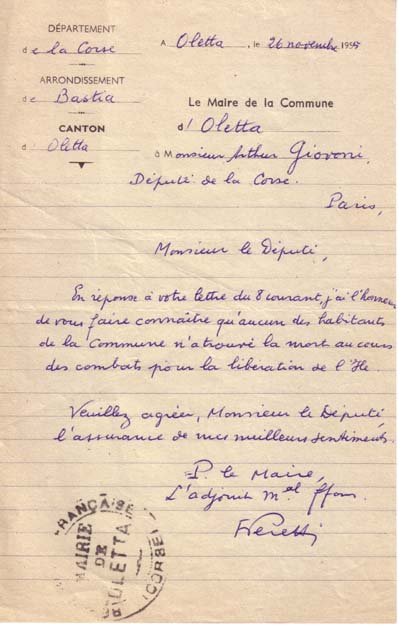 DÉPARTEMENT
de la Corse
A Oletta, le 26 novembre 1955
ARRONDISSEMENT
de Bastia
Le Maire de la Commune
CANTON
d'Oletta
d Oletta
à Monsieur Arthur Giovoni,
Député de la Corse.
Paris,
Monsieur le Député,
En réponse à votre lettre du 8 courant, j'ai l'honneur
de vous faire connaître qu'aucun des habitants
de la Commune n'a trouvé la mort au cours
des combats pour la libération de l'Ile.
Veuillez agréer, Monsieur le Député,
l'assurance de mes meilleurs sentiments.
P. le Maire,
L'adjoint Mel ffons.
FRANÇAISE
MAIRIE
DE
OLETTA
(CORSE)